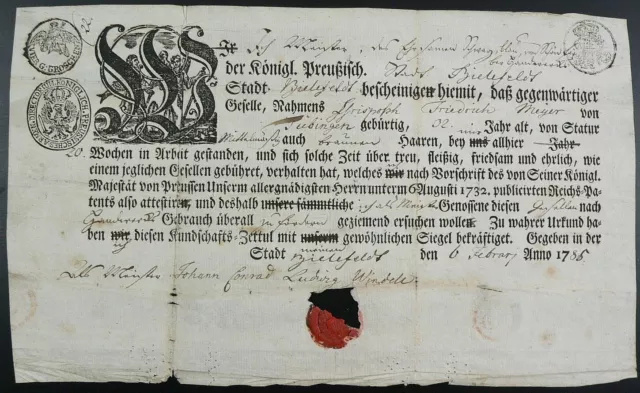 Wir Ich Meister, des Ehrsamen
der Königl. Preußisch. Stadt Bielefeldt
Stadt Bielefeldt bescheinigen hiemit, daß gegenwärtiger
Geselle, Nahmens Christoph Friedrich Meyer von
gebürtig, 32. Jahr alt, von Statur
Mittelmäßig auch braunen Haaren, bey uns allhier Jahr
20. Wochen in Arbeit gestanden, und sich solche Zeit über treu, fleißig, friedsam und ehrlich, wie
einem jeglichen Gesellen gebühret, verhalten hat, welches wir nach Vorschrift des von Seiner Königl.
Majestät von Preussen Unserm allergnädigsten Herrn unterm 6 Augusti 1732. publicirten Reichs-Pa-
tents also attestiren, und deshalb unsere sämmtliche Genossene diesen Gesellen nach
Gebrauch überall zu fördern geziemend ersuchen wollen. Zu wahrer Urkund ha-
ben wir diesen Kundschafts-Zettul mit unserm gewöhnlichen Siegel bekräftiget. Gegeben in der
ich meinen
Stadt Bielefeldt den 6 Februarÿ Anno 1786
als Meister Johann Conrad Ludwig